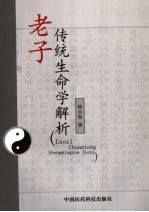 老子
传统生命学解析
(Laozi
Chuantong
Shengmingxue Jiexi)
著
中国医药科技出版社